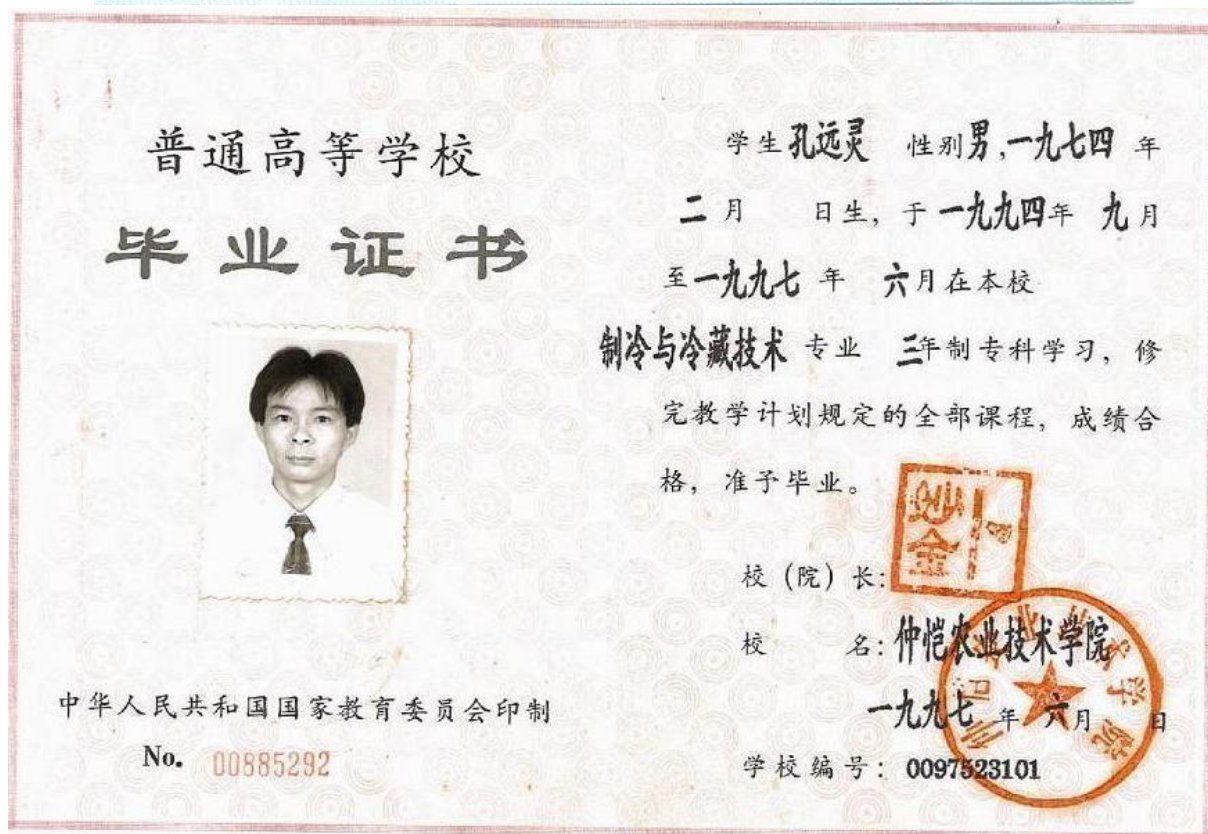 普通高等学校
毕业证书
中华人民共和国国家教育委员会印制
No. 00885292
学生孔远灵 性别男,一九七四 年
二月 日生, 于一九九四年 九月
至一九九七 年 六月在本校
制冷与冷藏技术 专业 三年制专科学习, 修
完教学计划规定的全部课程, 成绩合
格, 准予毕业。
校 (院) 长:
校 名: 仲恺农业技术学院
一九九七 年 六月 日
学校编号: 0097523101